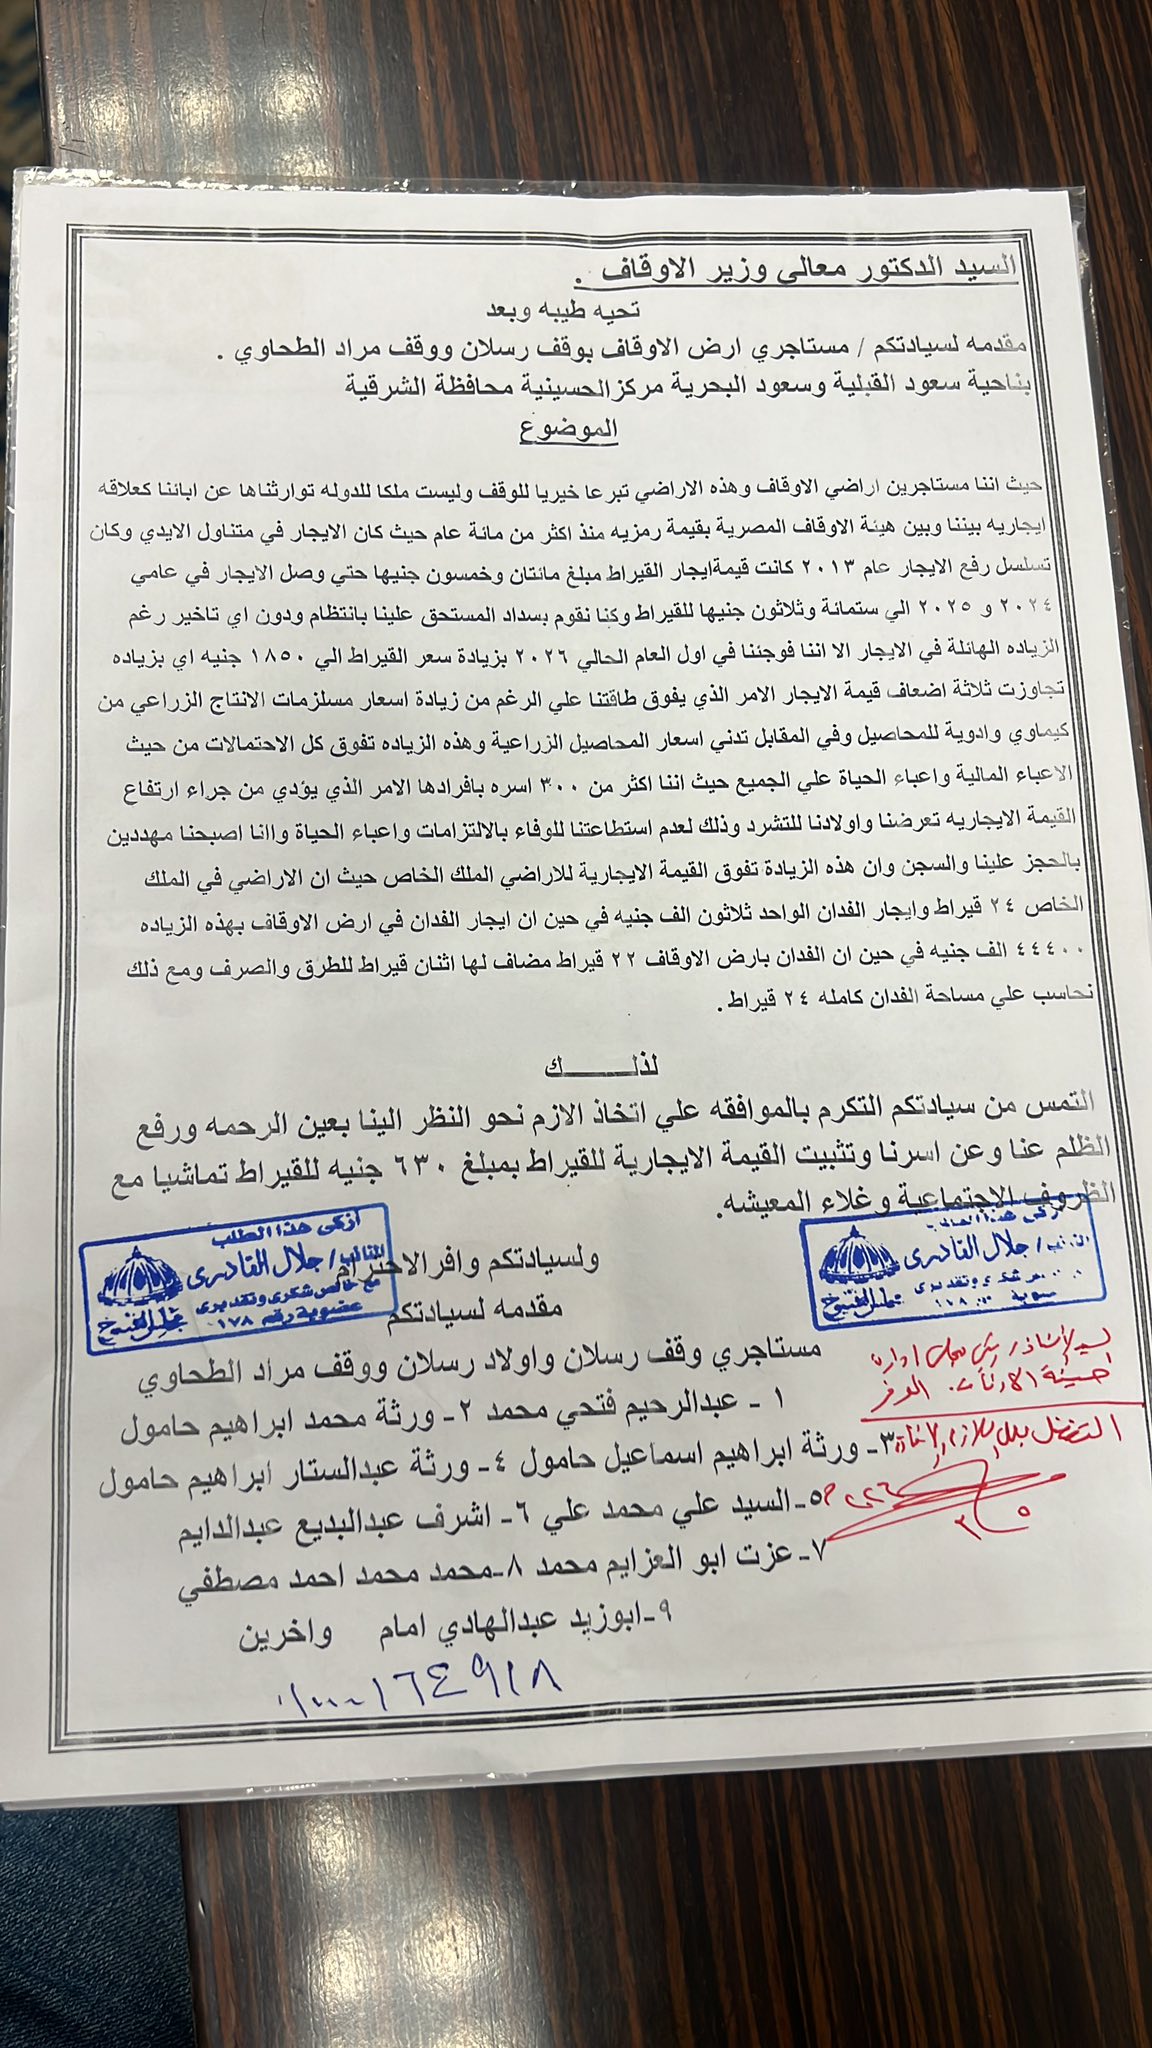 السيد الدكتور معالي وزير الاوقاف .
تحيه طيبه وبعد
مقدمه لسيادتكم / مستاجري ارض الاوقاف بوقف رسلان ووقف مراد الطحاوي .
بناحية سعود القبلية وسعود البحرية مركزالحسينية محافظة الشرقية
الموضوع
حيث اننا مستاجرين اراضي الاوقاف وهذه الاراضي تبرعا خيريا للوقف وليست ملكا للدوله توارثناها عن ابائنا كعلاقه
ايجاريه بيننا وبين هيئة الاوقاف المصرية بقيمة رمزيه منذ اكثر من مائة عام حيث كان الايجار في متناول الايدي وكان
تسلسل رفع الايجار عام ٢٠١٣ كانت قيمةايجار القيراط مبلغ مائتان وخمسون جنيها حتي وصل الايجار في عامي
٢٠٢٤ و ٢٠٢٥ الي ستمائة وثلاثون جنيها للقيراط وكنا نقوم بسداد المستحق علينا بانتظام ودون اي تاخير رغم
الزياده الهائلة في الايجار الا اننا فوجئنا في اول العام الحالي ٢٠٢٦ بزيادة سعر القيراط الي ١٨٥٠ جنيه اي بزياده
تجاوزت ثلاثة اضعاف قيمة الايجار الامر الذي يفوق طاقتنا علي الرغم من زيادة اسعار مسلزمات الانتاج الزراعي من
كيماوي وادوية للمحاصيل وفي المقابل تدني اسعار المحاصيل الزراعية وهذه الزياده تفوق كل الاحتمالات من حيث
الاعباء المالية واعباء الحياة علي الجميع حيث اننا اكثر من ٣٠٠ اسره بافرادها الامر الذي يؤدي من جراء ارتفاع
القيمة الايجاريه تعرضنا واولادنا للتشرد وذلك لعدم استطاعتنا للوفاء بالالتزامات واعباء الحياة واانا اصبحنا مهددين
بالحجز علينا والسجن وان هذه الزيادة تفوق القيمة الايجارية للاراضي الملك الخاص حيث ان الاراضي في الملك
الخاص ٢٤ قيراط وايجار الفدان الواحد ثلاثون الف جنيه في حين ان ايجار الفدان في ارض الاوقاف بهذه الزياده
٤٤٤٠٠ الف جنيه في حين ان الفدان بارض الاوقاف ٢٢ قيراط مضاف لها اثنان قيراط للطرق والصرف ومع ذلك
نحاسب علي مساحة الفدان كامله ٢٤ قيراط .
لذلـــــــــك
التمس من سيادتكم التكرم بالموافقه علي اتخاذ الازم نحو النظر الينا بعين الرحمه ورفع
الظلم عنا وعن اسرنا وتثبيت القيمة الايجارية للقيراط بمبلغ ٦٣٠ جنيه للقيراط تماشيا مع
الظروف الاجتماعية وغلاء المعيشه.
أزكى هذا الطلب
النائب / جلال القادرى
مع خالص شكرى وتقديرى
عضوية رقم ١٧٨
مجلس الشيوخ
النائب / جلال القادرى
شكرى وتقديرى
١٧٨
مجلس الشيوخ
ولسيادتكم وافرالاحترام
مقدمه لسيادتكم
مستاجري وقف رسلان واولاد رسلان ووقف مراد الطحاوي
السيد الأستاذ رئيس مجلس ادارة
هيئة الأوقاف الموقر
١ - عبدالرحيم فتحي محمد ٢- ورثة محمد ابراهيم حامول
التفضل
٣- ورثة ابراهيم اسماعيل حامول ٤- ورثة عبدالستار ابراهيم حامول
٥- السيد علي محمد علي ٦- اشرف عبدالبديع عبدالدايم
٢٠٢٦
٧- عزت ابو العزايم محمد ٨-محمد محمد احمد مصطفي
٩-ابوزيد عبدالهادي امام واخرين